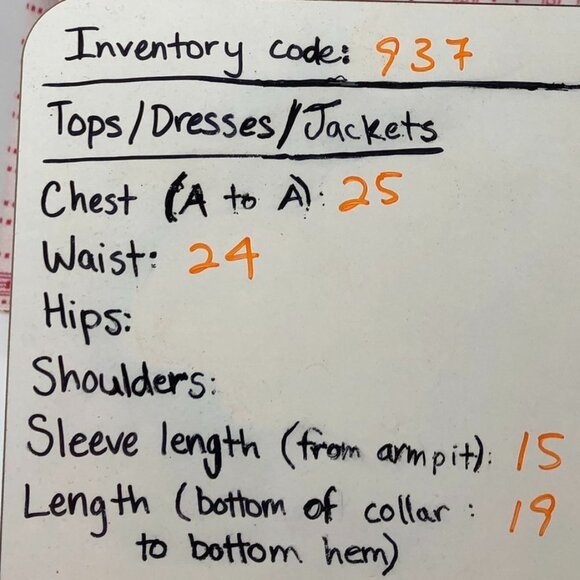 Inventory code: 937
Tops/Dresses/Jackets
Chest (A to A): 25
Waist: 24
Hips:
Shoulders:
Sleeve length (from armpit): 15
Length (bottom of collar : 19
to bottom hem)